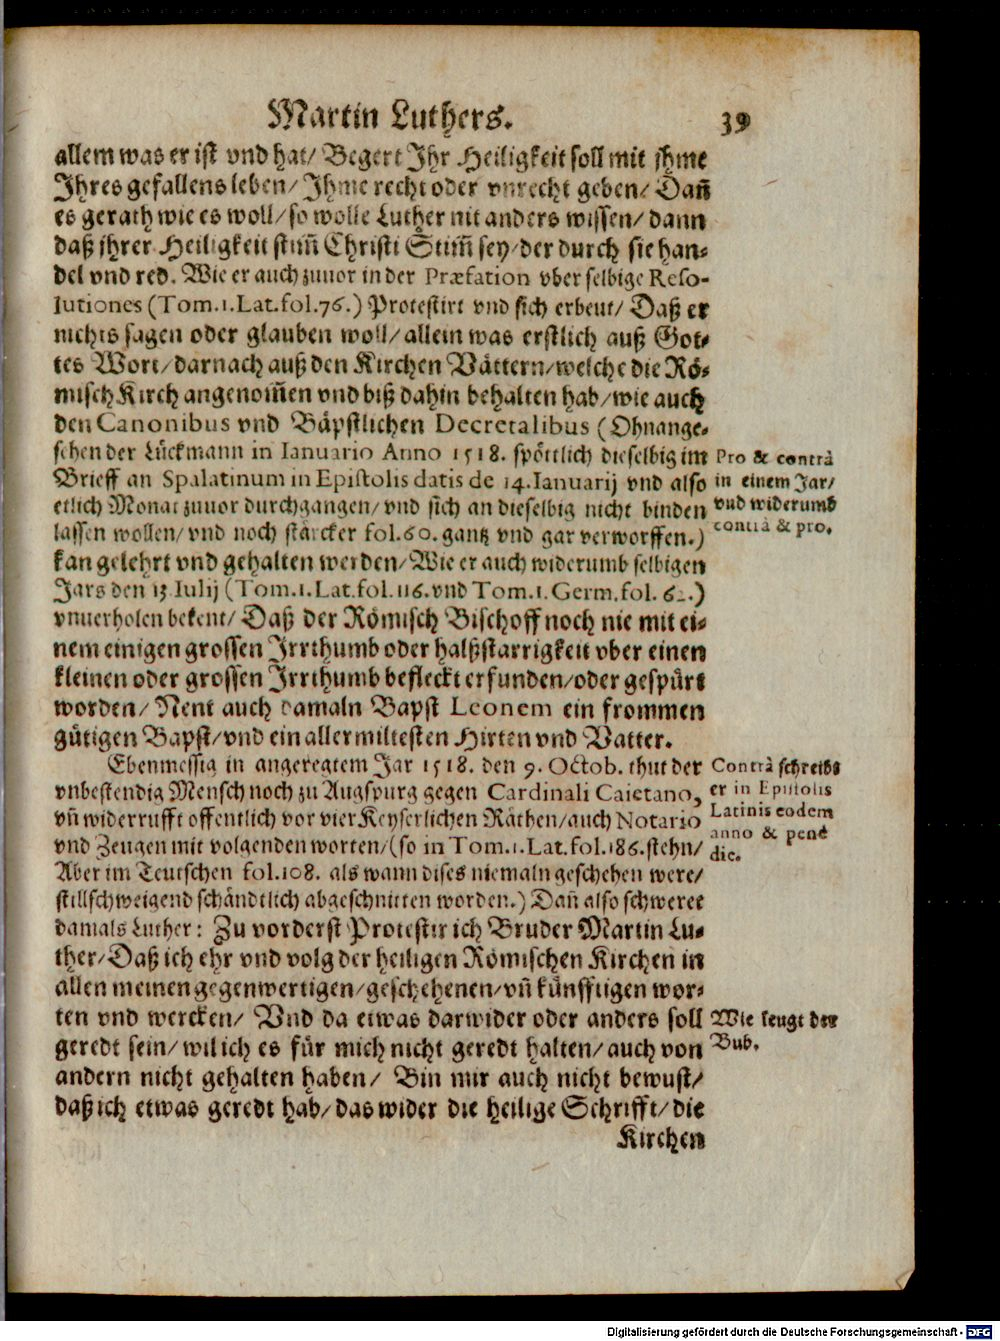 Martin Luthers. 39
allem was er ist vnd hat/ Begert Ihr Heiligkeit soll mit jhme
Ihres gefallens leben/ Ihme recht oder vnrecht geben/ Dañ
es gerath wie es woll/ so wolle Luther nit anders wissen/ dann
daß jhrer Heiligkeit stim̃ Christi Stim̃ sey/ der durch sie han-
del vnd red. Wie er auch zuuor in der Præfation vber selbige Reso-
lutiones (Tom. 1. Lat. fol. 76.) Protestirt vnd sich erbeut/ Daß er
nichts sagen oder glauben woll/ allein was erstlich auß Got-
tes Wort/ darnach auß den Kirchen Vättern/ welche die Rö-
misch Kirch angenom̃en vnd biß dahin behalten hab/ wie auch
den Canonibus vnd Bäpstlichen Decretalibus (Ohnange-
sehen der Lückmann in Ianuario Anno 1518. spöttlich dieselbig im
Brieff an Spalatinum in Epistolis datis de 14. Ianuarij vnd also
etlich Monat zuuor durchgangen/ vnd sich an dieselbig nicht binden
lassen wollen/ vnd noch stärcker fol. 60. gantz vnd gar verworffen.)
kan gelehrt vnd gehalten werden/ Wie er auch widerumb selbigen
Jars den 13 Iulij (Tom. 1. Lat. fol. 116. vnd Tom. 1. Germ. fol. 6 .)
vnuerholen bekent/ Daß der Römisch Bischoff noch nie mit ei-
nem einigen grossen Irrthumb oder halßstarrigkeit vber einen
kleinen oder grossen Irrthumb befleckt erfunden/ oder gespürt
worden/ Nent auch damaln Bapst Leonem ein frommen
gütigen Bapst/ vnd ein allermiltesten Hirten vnd Vatter.
Pro & contrà
in einem Jar/
vnd widerumb
contrà & pro.
Ebenmessig in angeregtem Jar 1518. den 9. Octob. thut der
vnbestendig Mensch noch zu Augspurg gegen Cardinali Caietano,
vñ widerrufft offentlich vor vier Keyserlichen Räthen/ auch Notario
vnd Zeugen mit volgenden worten/ (so in Tom. 1. Lat. fol. 186. stehn/
Aber im Teutschen fol. 108. als wann dises niemaln geschehen were/
stillschweigend schändtlich abgeschnitten worden.) Dañ also schweret
damals Luther: Zu vorderst Protestir ich Bruder Martin Lu-
ther/ Daß ich ehr vnd volg der heiligen Römischen Kirchen in
allen meinen gegenwertigen/ geschehenen/ vñ künfftigen wor-
ten vnd wercken/ Vnd da etwas darwider oder anders soll
geredt sein/ wil ich es für mich nicht geredt halten/ auch von
andern nicht gehalten haben/ Bin mir auch nicht bewust/
daß ich etwas geredt hab/ das wider die heilige Schrifft/ die
Kirchen
Contrà schreibs
er in Epistolis
Latinis eodem
anno & penè
die.
Wie leugt der
Bub.
Digitalisierung gefördert durch die Deutsche Forschungsgemeinschaft - DFG